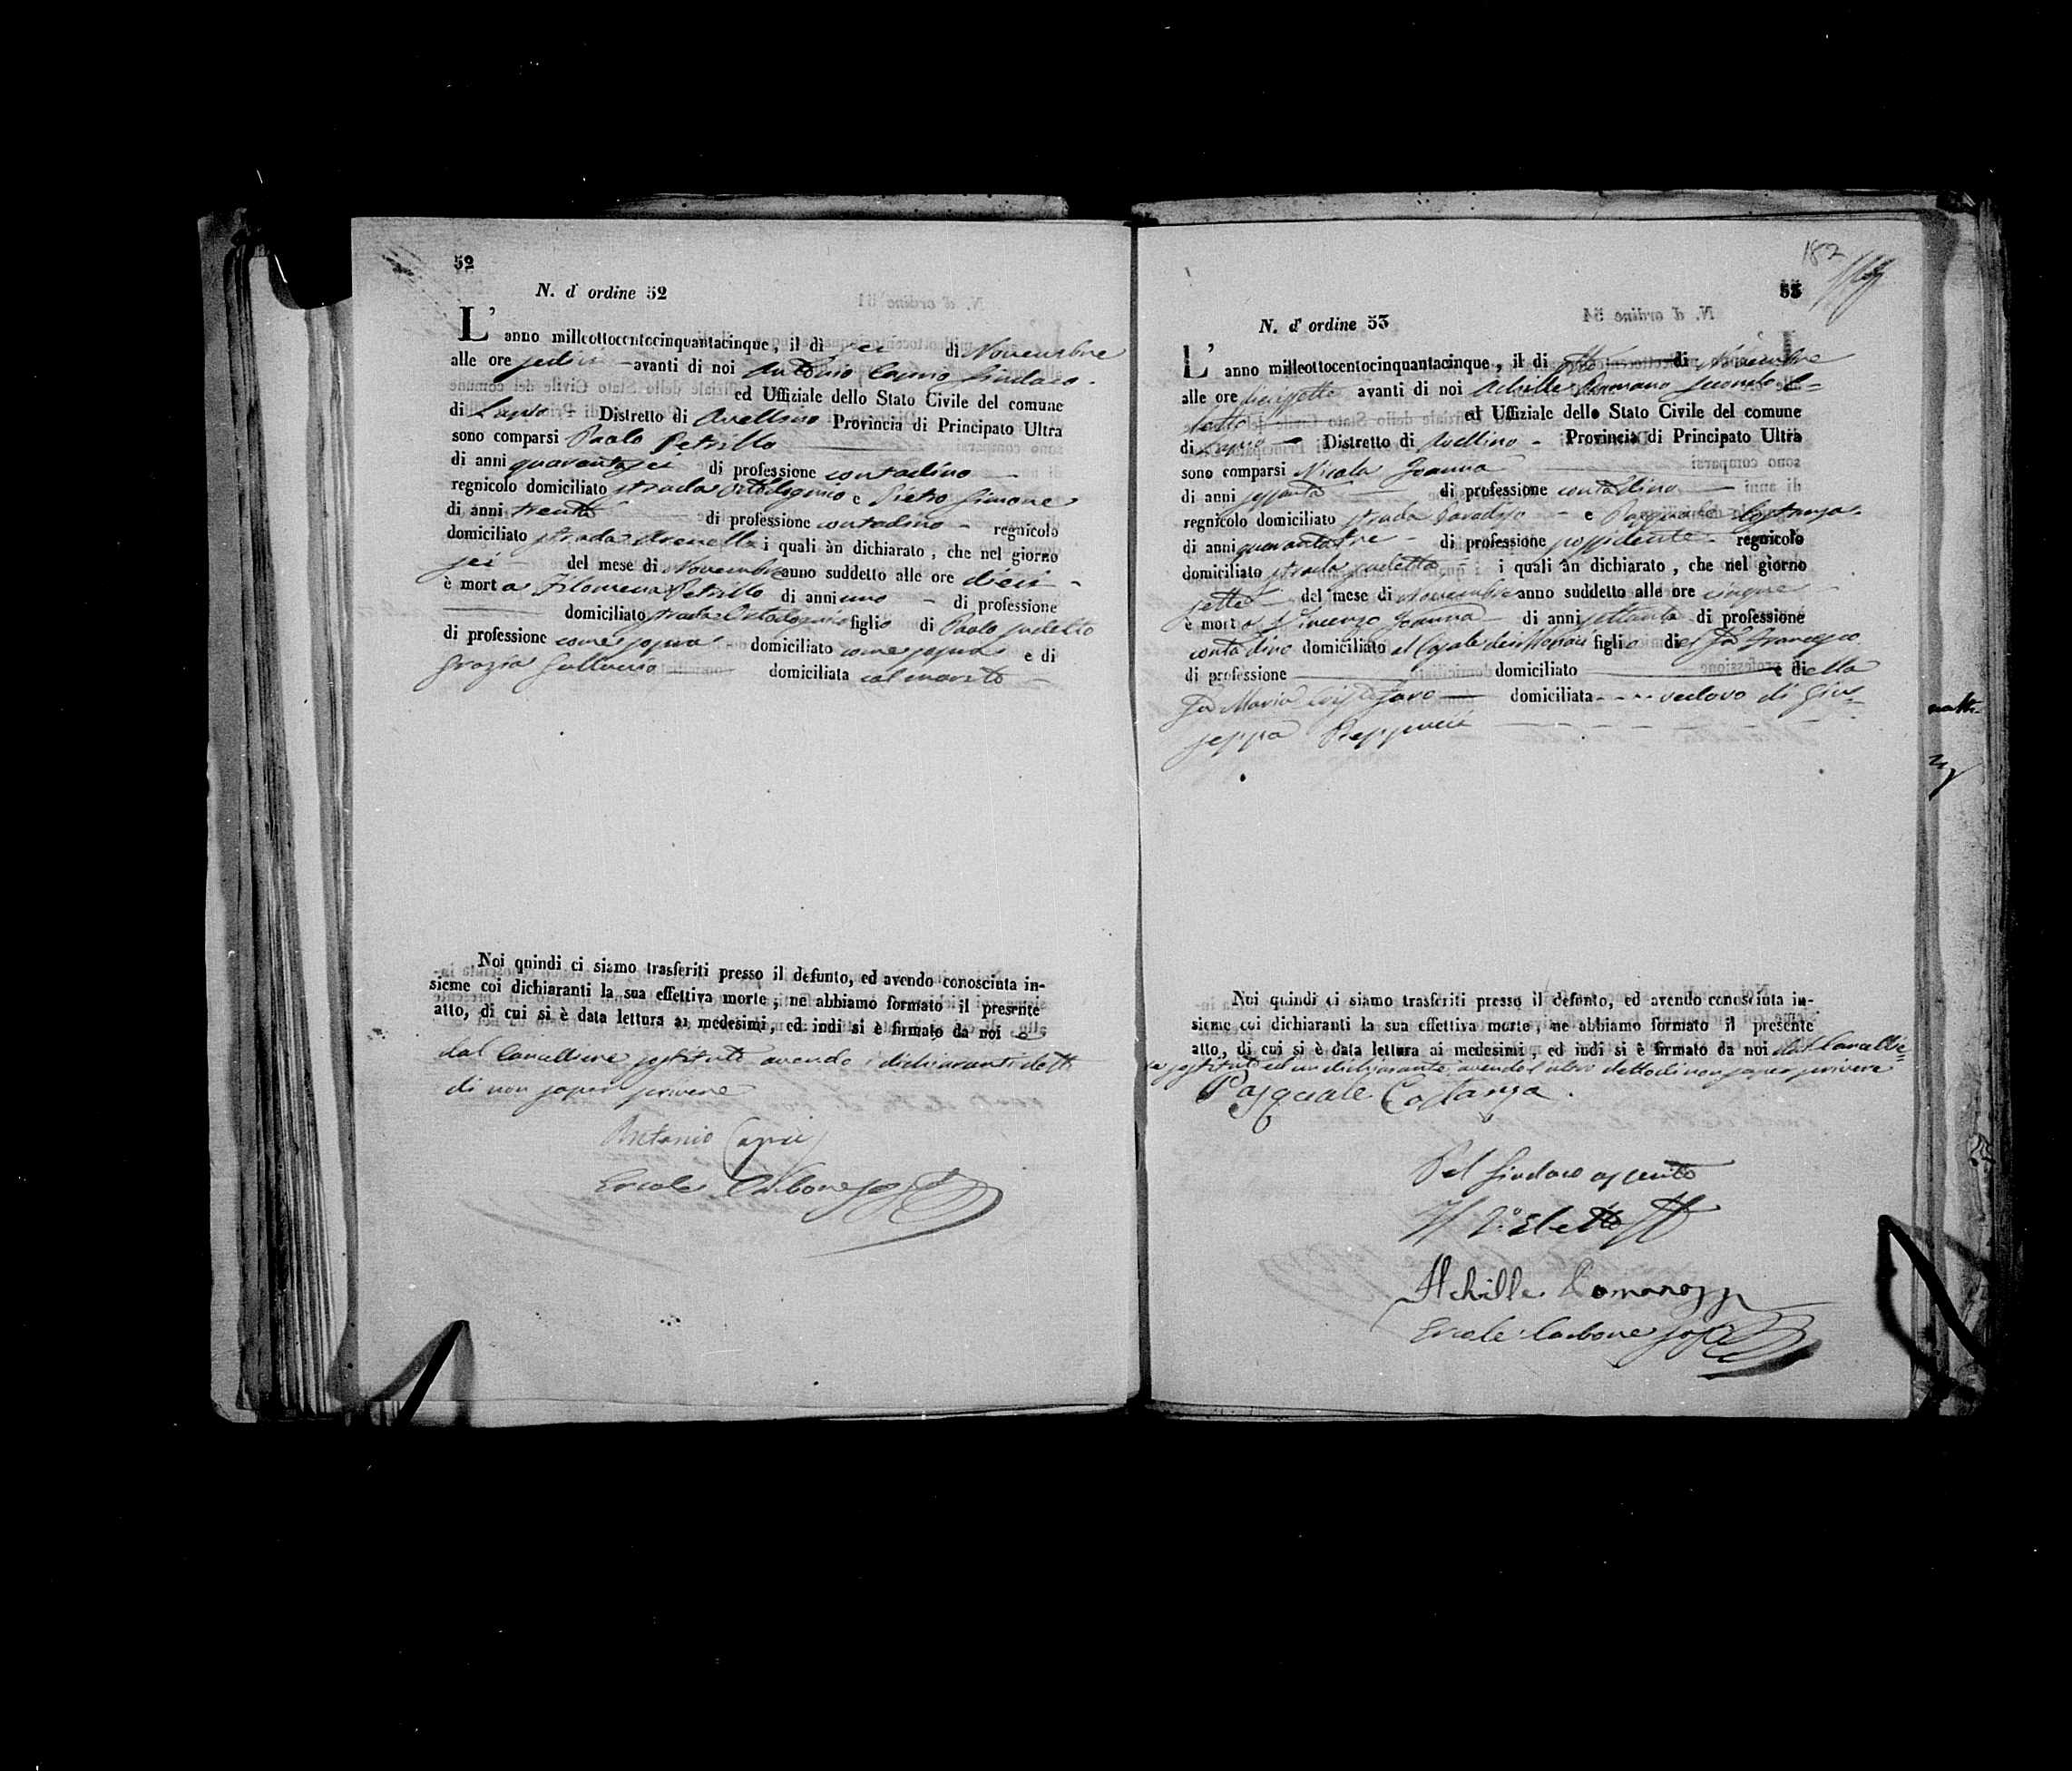 52
N. d' ordine 52
L' anno milleottocentocinquantacinque, il dì sei di Novembre
alle ore sedici avanti di noi Antonio Caprio Sindaco
ed Uffiziale dello Stato Civile del comune
di Lapio Distretto di Avellino Provincia di Principato Ultra
sono comparsi Paolo Petrillo
di anni quarantasei di professione contadino
regnicolo domiciliato strada e Pietro Simone
di anni trenta di professione contadino regnicolo
domiciliato strada Arenella i quali àn dichiarato, che nel giorno
sei del mese di Novembre anno suddetto alle ore dieci
è morta Filomena Petrillo di anni uno di professione
domiciliato strada figlia di Paolo sudetto
di professione come sopra domiciliato come sopra e di
Grazia domiciliata col marito
Noi quindi ci siamo trasferiti presso il defunto, ed avendo conosciuta in-
sieme coi dichiaranti la sua effettiva morte, ne abbiamo formato il presente
atto, di cui si è data lettura ai medesimi, ed indi si è firmato da noi e
dal Cancelliere sostituto avendo i dichiaranti detto
di non saper scrivere
Antonio Caprio
Ercole Carbone sost
182
53
N. d' ordine 53
L' anno milleottocentocinquantacinque, il di di Novembre
alle ore diciassette avanti di noi Achille Romano secondo E-
letto ed Uffiziale dello Stato Civile del comune
di Lapio Distretto di Avellino Provincia di Principato Ultra
sono comparsi Nicola Joanna
di anni sessanta di professione contadino
regnicolo domiciliato strada Paradiso e Pasquale Costanza
di anni quarantatre di professione possidente regnicolo
domiciliato strada sudetta i quali àn dichiarato, che nel giorno
sette del mese di Novembre anno suddetto alle ore cinque
è morto Vincenzo Joanna di anni settanta di professione
contadino domiciliato al Casale dei Monaci figlio del fu Francesco
di professione domiciliato e della
fu Maria domiciliata vedovo di Giu-
seppa
Noi quindi ci siamo trasferiti presso il defunto, ed avendo conosciuta in-
sieme coi dichiaranti la sua effettiva morte, ne abbiamo formato il presente
atto, di cui si è data lettura ai medesimi, ed indi si è firmato da noi dal Cancellie-
re sostituto ed un dichiarante avendo l'altro detto di non saper scrivere
Pasquale Costanza
Pel Sindaco assente
Il 2.º Eletto
Achille Romano
Ercole Carbone sost